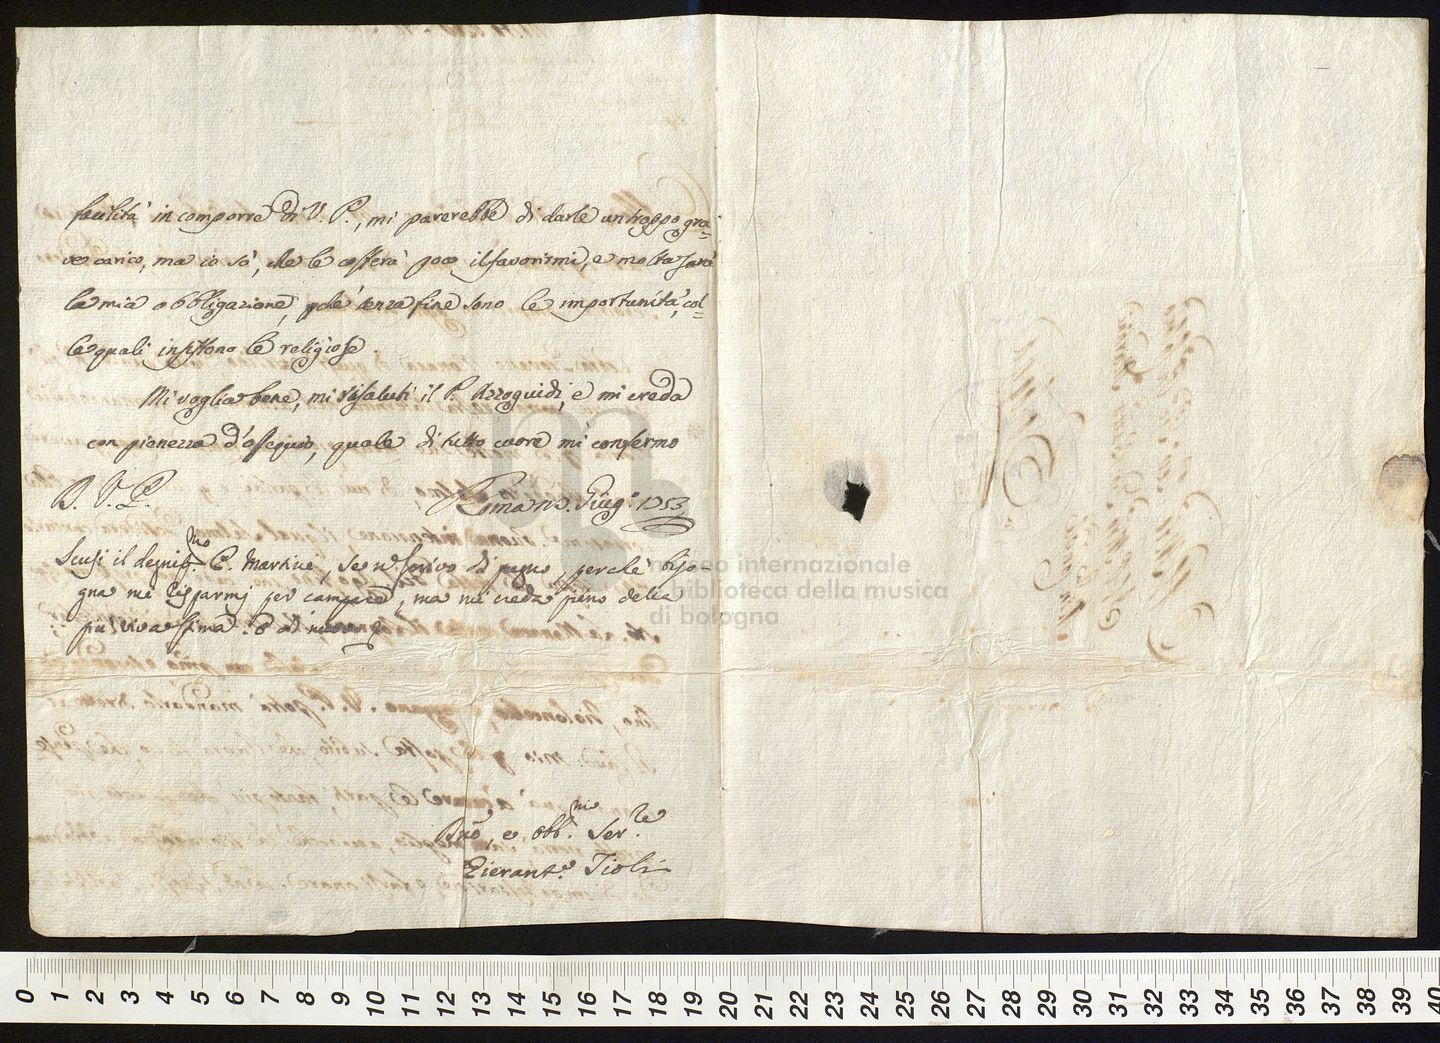 facilità in comporre di V. P., mi parerebbe di darle un troppo gra=
ve carico, ma io sò, che le costerà poco il favorirmi, e molta sarà
la mia obbligazione, pchè senza fine sono le importunità, col=
le quali insistono le religiose.
Mi voglia bene, mi risaluti il P. Azzoguidi, e mi creda
con pienezza d'ossequio, quale di tutto cuore mi confermo
D. V. P.
Roma Giug.º 1753
Scusi il degniss.mo P. Martini, se n. scrivo di pugno perchè biso=
gna mi risparmj per campare, ma mi creda pieno della
più viva stima
Dmo, e obb.mo Ser.re
Pierant.º Tioli
museo internazionale
e biblioteca della musica
di bologna
0 1 2 3 4 5 6 7 8 9 10 11 12 13 14 15 16 17 18 19 20 21 22 23 24 25 26 27 28 29 30 31 32 33 34 35 36 37 38 39 40